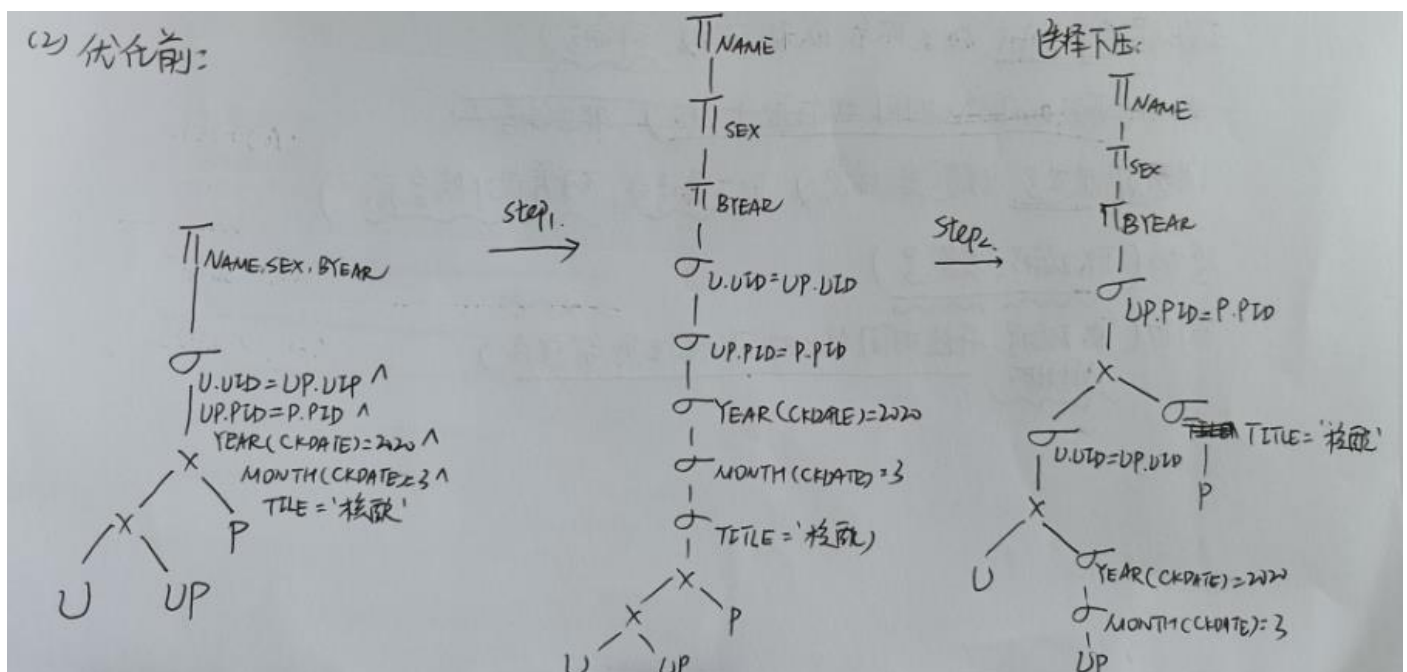 (2) 优化前:
Π NAME.SEX.BYEAR
σ U.UID=UP.UIP ∧
UP.PID=P.PID ∧
YEAR(CKDATE)=2020 ∧
MONTH(CKDATE)=3 ∧
TILE='核酸'
×
×
P
U
UP
step1.
Π NAME
Π SEX
Π BYEAR
σ U.UID=UP.UID
σ UP.PID=P.PID
σ YEAR(CKDATE)=2020
σ MONTH(CKDATE)=3
σ TITLE='核酸)
×
×
P
U
UP
step2.
选择下压:
Π NAME
Π SEX
Π BYEAR
σ UP.PID=P.PID
×
σ U.UID=UP.UID
σ TITLE='核酸'
×
P
U
σ YEAR(CKDATE)=2020
σ MONTH(CKDATE)=3
UP